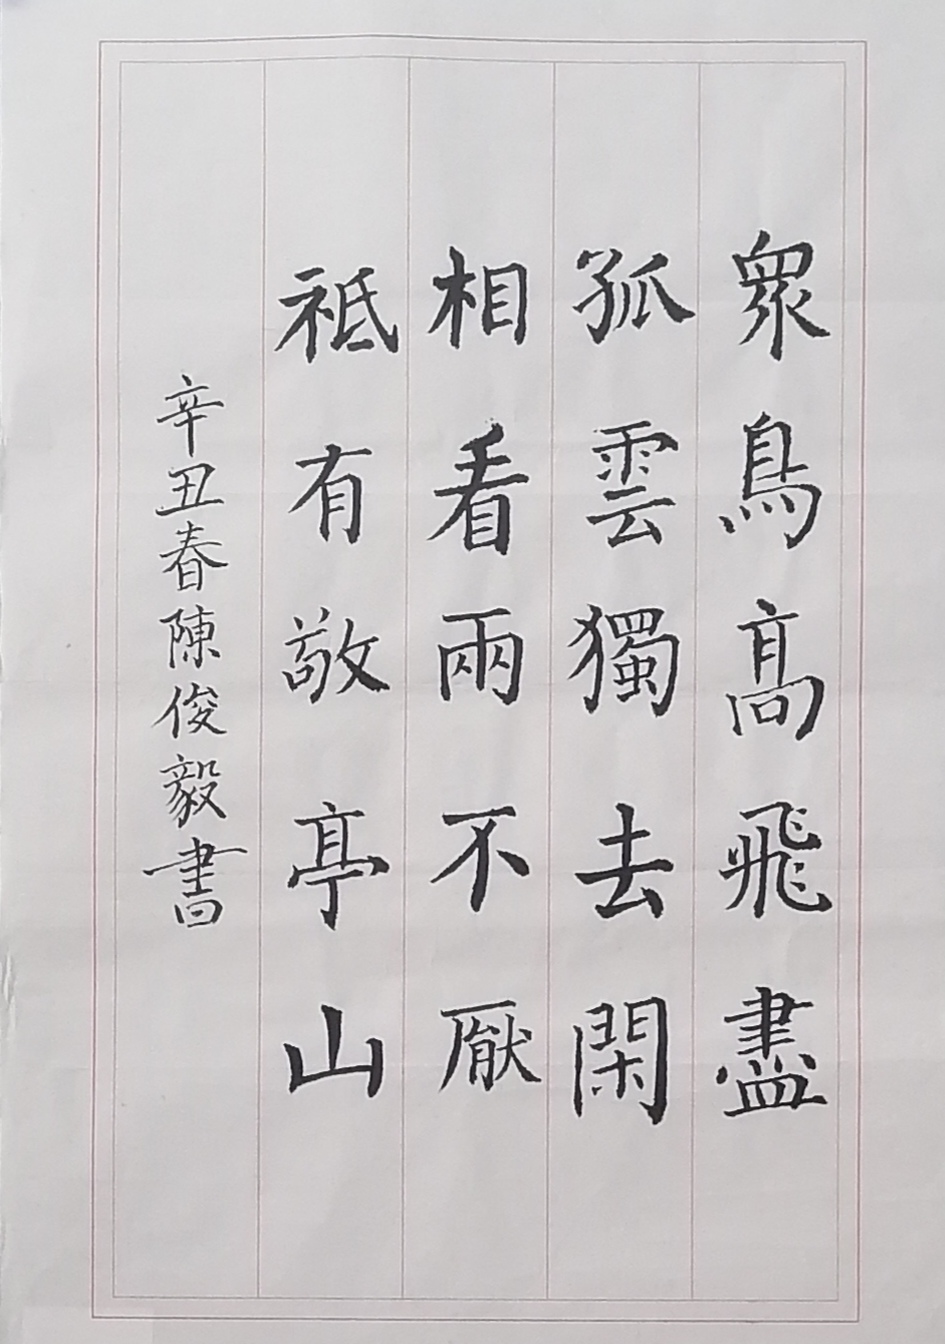 眾鳥高飛盡
孤雲獨去閑
相看兩不厭
祗有敬亭山
辛丑春陳俊毅書